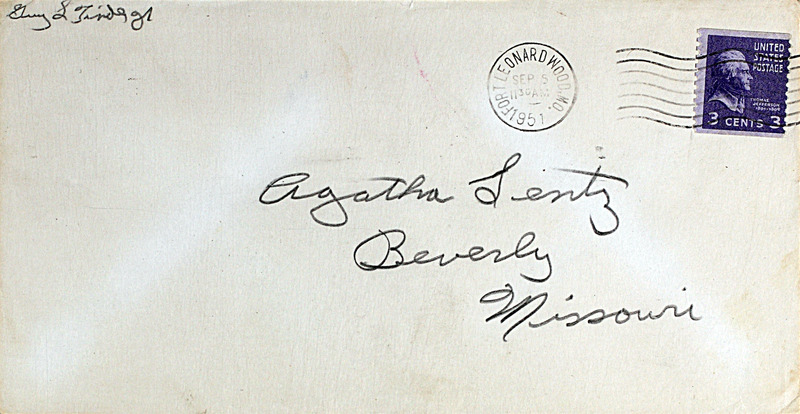 Guy L Tinds gt
FORT LEONARD WOOD, MO.
SEP 5
11 30 AM
1951
UNITED
STATES
POSTAGE
THOMAS
JEFFERSON
3 CENTS 3
Agatha Lentz
Beverly
Missouri